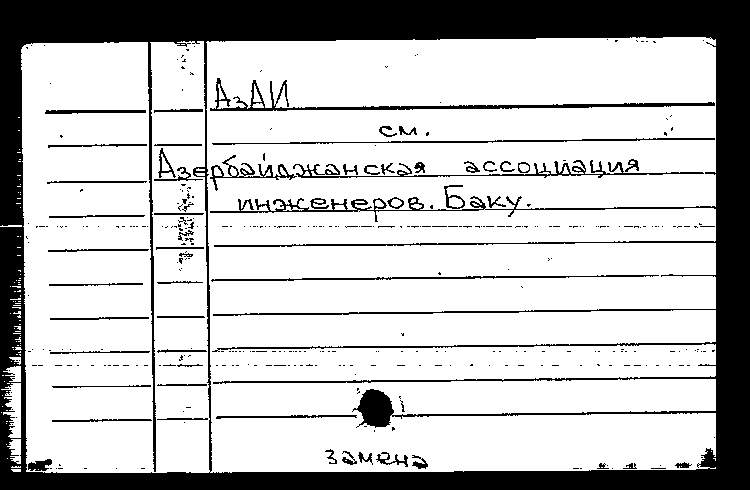 АзАИ
см.
Азербайджанская ассоциация
инженеров. Баку.
замена